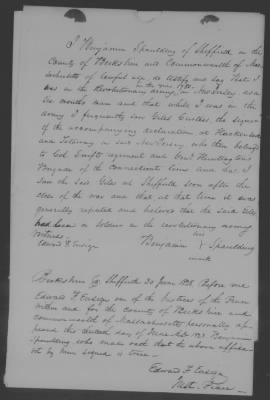 I Benjamin Spaulding of Sheffield in the
County of Berkshire and Commonwealth of Mas-
sachusetts of lawful age, do testify and say that I
was in the Revolutionary army, in New Jersey as a
in the year 1780
six months man and that while I was in the
army I frequently saw Giles Curtiss, the signer
of the accompanying declaration at Hackensack
and Totoway in said New Jersey who then belonged
to Col Swift regiment and Genl Huntingtons
Brigade of the Connecticut line and that I
saw the said Giles at Sheffield soon after the
close of the war and that at that time it was
generally reputed and believed that the said Giles
had been a soldier in the revolutionary army
Witness his
Edward F. Ensign Benjamin X Spaulding
mark
Berkshire ss Sheffield 30 June 1828. Before me
Edward F Ensign one of the Justices of the Peace
within and for the County of Berkshire and
commonwealth of Massachusetts personally ap-
peared this day of Benjamin
Spaulding who made oath that the above affida-
vit by him signed is true.
Edward F Ensign
Just. Peace